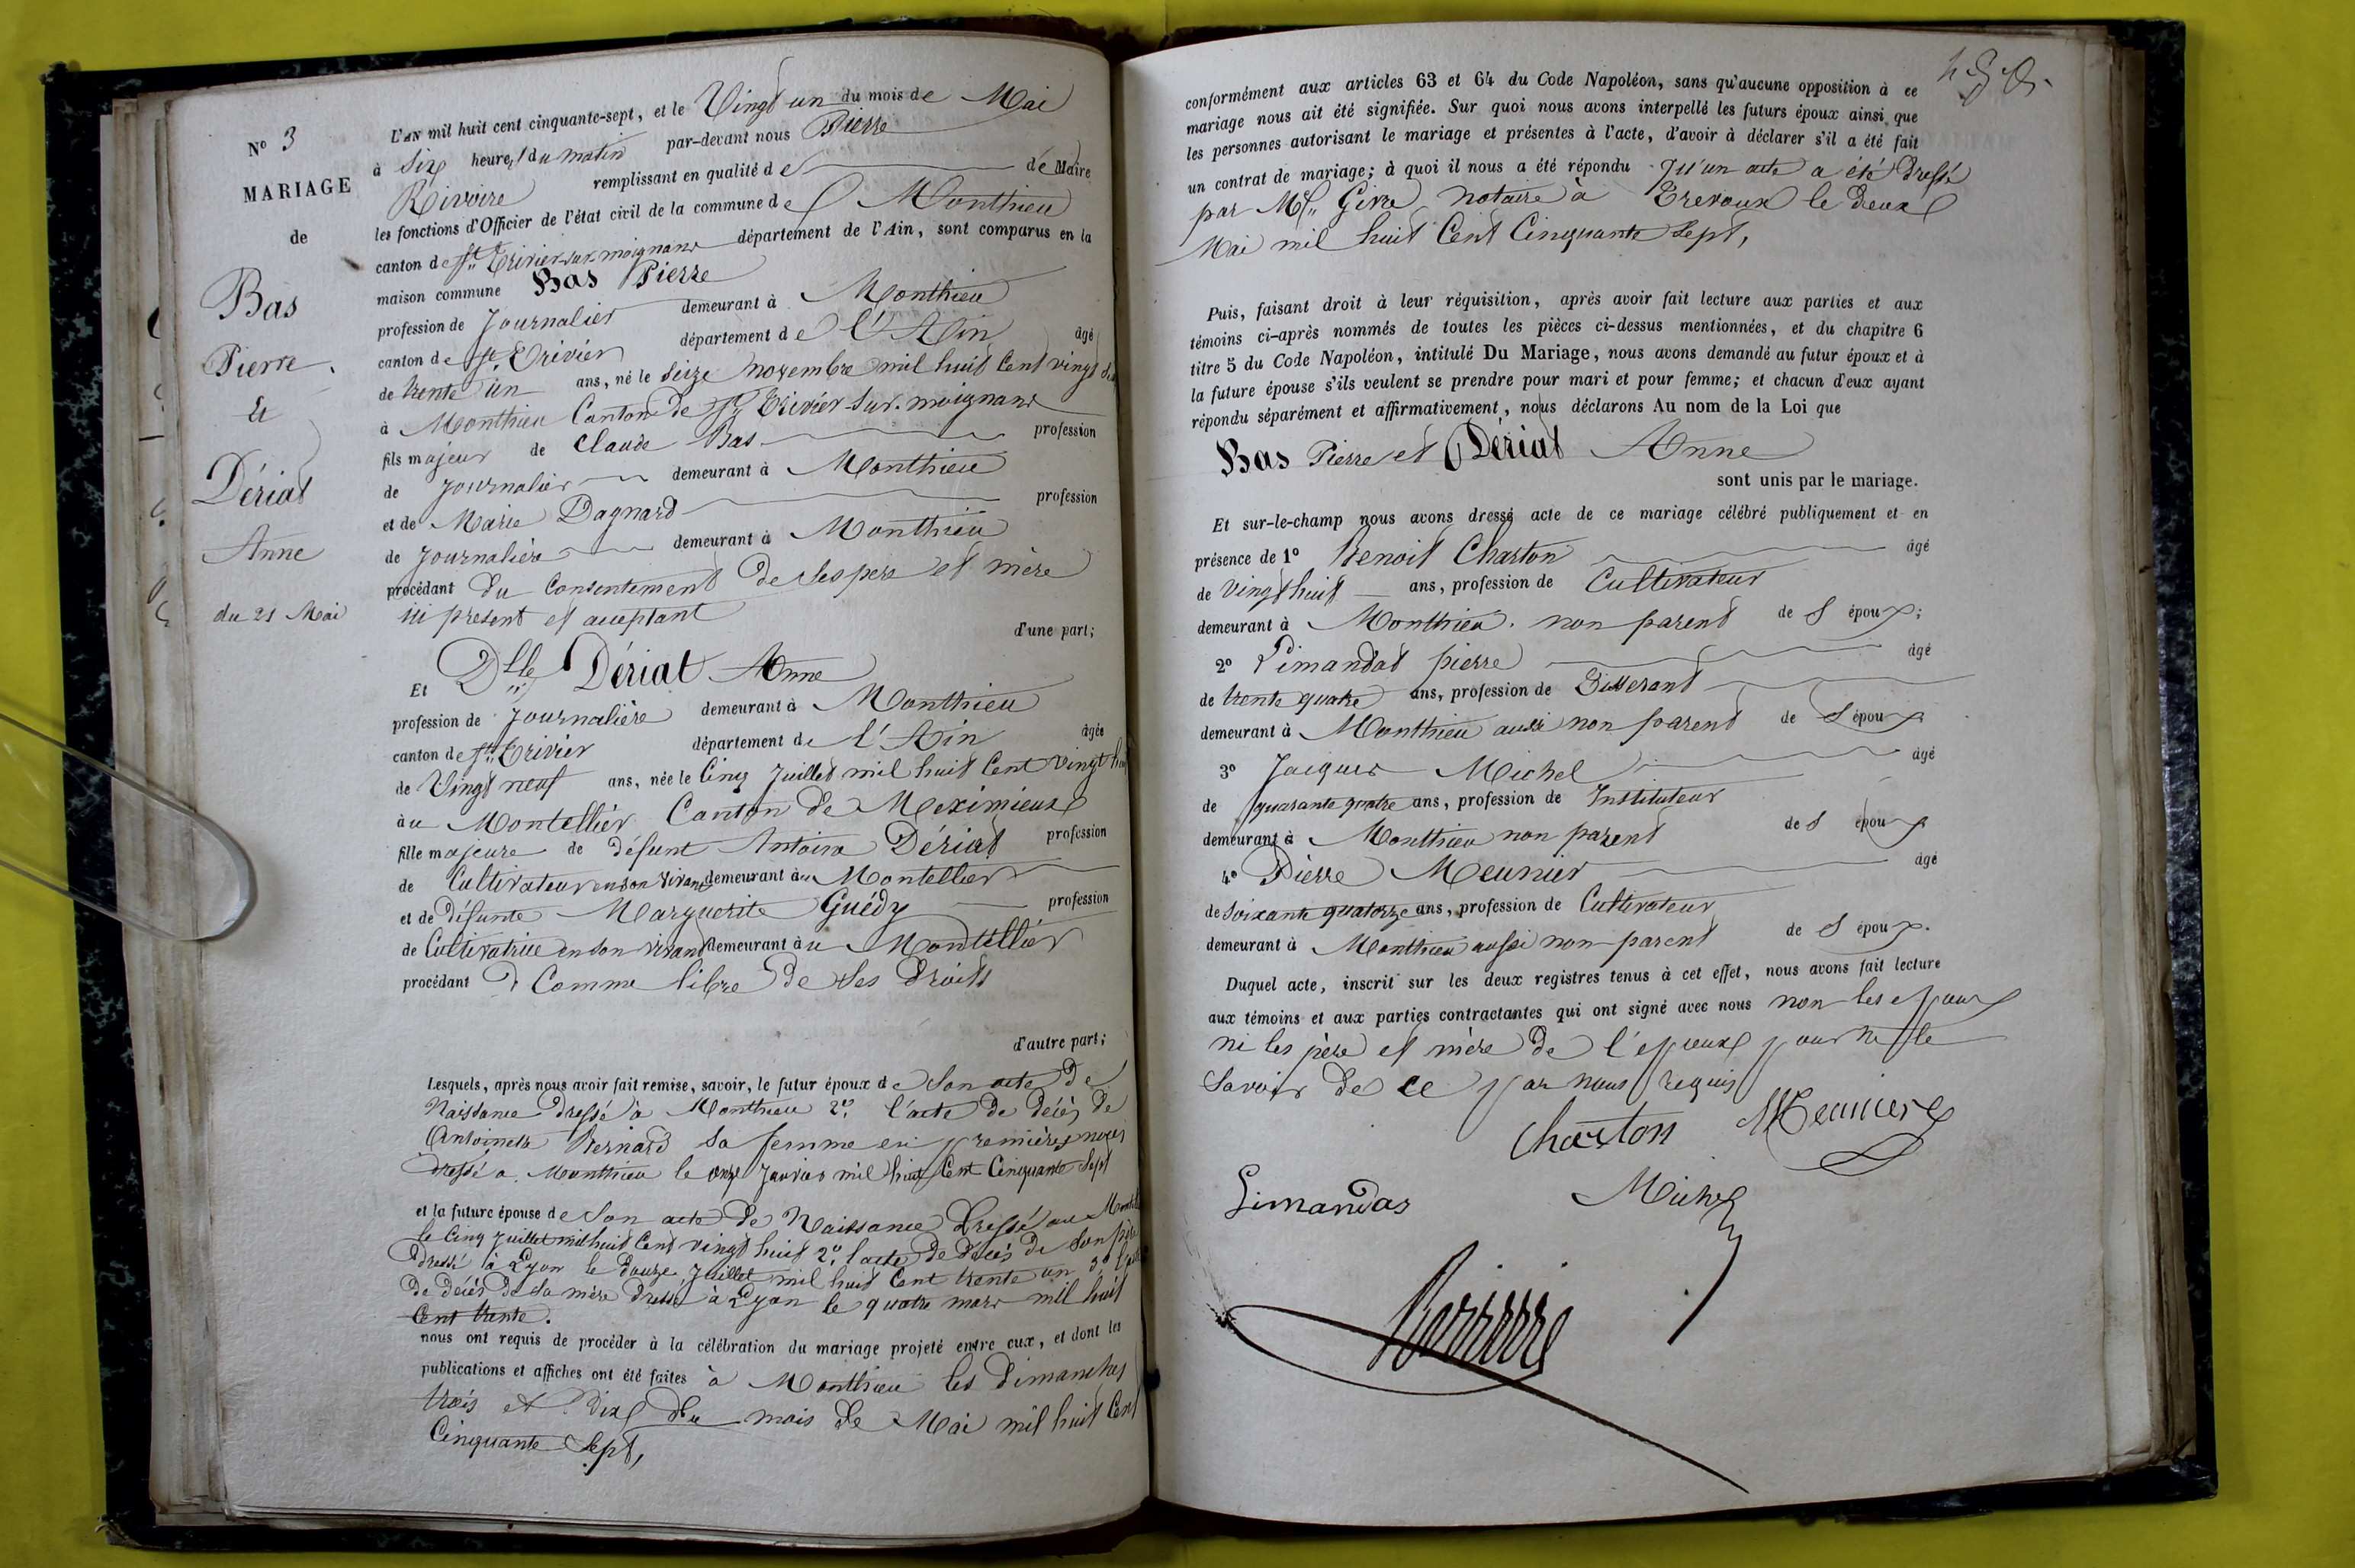 N° 3
MARIAGE
de
Bas
Pierre.
et
Dériat
Anne
du 21 Mai
L'AN mil huit cent cinquante-sept, et le Vingt un du mois de Mai
à Six heures du matin par-devant nous Pierre
Rivoire remplissant en qualité de de Maire
les fonctions d'Officier de l'état civil de la commune de Monthieu
canton de St Trivier-sur-moignans département de l'Ain, sont comparus en la
maison commune Bas Pierre
profession de Journalier demeurant à Monthieu
canton de St Trivier département de l'Ain âgé
de trente un ans, né le seize novembre mil huit Cent vingt
à Monthieu Canton de St Trivier-sur-moignans
fils majeur de Claude Bas profession
de Journalier demeurant à Monthieu
et de Marie Dagnard profession
de Journalière demeurant à Monthieu
procédant du Consentement de ses père et mère
ici présent et acceptant
d'une part;
Et Dlle Dériat Anne
profession de Journalière demeurant à Monthieu
canton de St Trivier département de l'Ain âgée
de Vingt neuf ans, née le Cinq Juillet mil huit Cent Vingt
àu Montellier Canton de Meximieux
fille majeure de défunt Antoine Dériat profession
de Cultivateur en son vivant demeurant àu Montellier
et de défunte Marguerite Guédy profession
de Cultivatrice en son vivant demeurant àu Montellier
procédant Comme libre de ses droits
d'autre part;
Lesquels, après nous avoir fait remise, savoir, le futur époux de Son acte de
Naissance dressé à Monthieu 2° l'acte de décès de
Antoinette Bernard sa femme en premières noces
dressé à Monthieu le onze Janvier mil huit Cent Cinquante Sept
et la future épouse de Son acte de Naissance dressé au
le Cinq Juillet mil huit Cent vingt huit 2° l'acte de décès de son père
dressé à Lyon le douze Juillet mil huit Cent trente un 3° l'acte
de décès de sa mère dressé à Lyon le quatre mars mil huit
Cent trente.
nous ont requis de procéder à la célébration du mariage projeté entre eux, et dont les
publications et affiches ont été faites à Monthieu les Dimanches
trois et dix du mois de Mai mil huit Cent
Cinquante Sept,
conformément aux articles 63 et 64 du Code Napoléon, sans qu'aucune opposition à ce
mariage nous ait été signifiée. Sur quoi nous avons interpellé les futurs époux ainsi que
les personnes autorisant le mariage et présentes à l'acte, d'avoir à déclarer s'il a été fait
un contrat de mariage; à quoi il nous a été répondu qu'un acte a été dressé
par notaire à Trevoux le deux
Mai mil huit Cent Cinquante Sept,
Puis, faisant droit à leur réquisition, après avoir fait lecture aux parties et aux
témoins ci-après nommés de toutes les pièces ci-dessus mentionnées, et du chapitre 6
titre 5 du Code Napoléon, intitulé Du Mariage, nous avons demandé au futur époux et à
la future épouse s'ils veulent se prendre pour mari et pour femme; et chacun d'eux ayant
répondu séparément et affirmativement, nous déclarons Au nom de la Loi que
Bas Pierre et Dériat Anne
sont unis par le mariage.
Et sur-le-champ nous avons dressé acte de ce mariage célébré publiquement et en
présence de 1° Benoit Charton âgé
de Vingt huit ans, profession de Cultivateur
demeurant à Monthieu. non parent de S époux;
2° Limandas pierre âgé
de trente quatre ans, profession de Tisserant
demeurant à Monthieu aussi non parent de S époux
3° Jacques Michel âgé
de quarante quatre ans, profession de Instituteur
demeurant à Monthieu non parent de S époux
4° Pierre Meunier âgé
de soixante quatorze ans, profession de Cultivateur
demeurant à Monthieu aussi non parent de S époux.
Duquel acte, inscrit sur les deux registres tenus à cet effet, nous avons fait lecture
aux témoins et aux parties contractantes qui ont signé avec nous non les époux
ni les père et mère de l'époux pour ne le
savoir de ce par nous requis
Charton Meunier
Limandas Michel
Rivoire